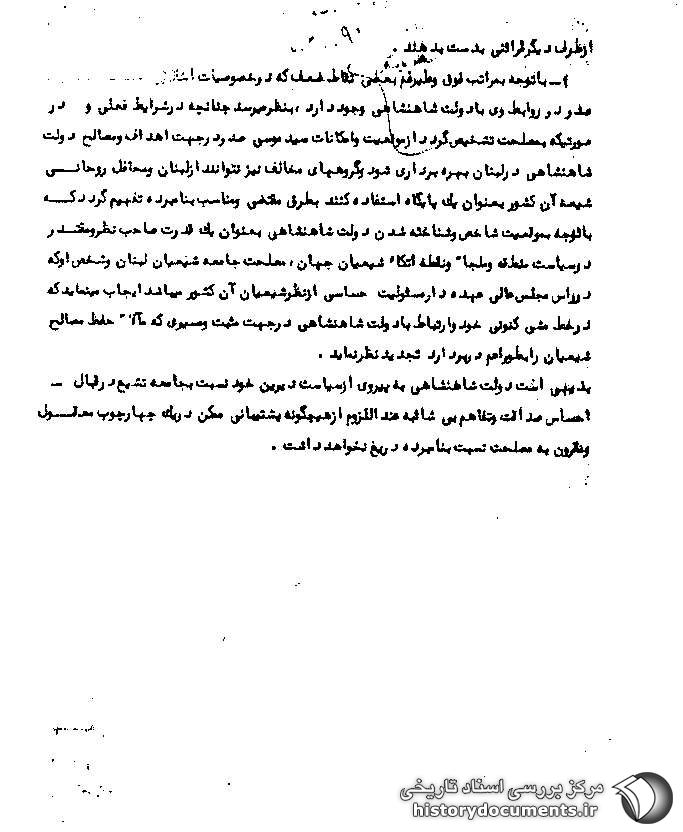 ازطرف دیگرفراغتی بدست بدهند .
۴ـ باتوجه بمراتب فوق وعلیرغم بعضی نقاط ضعف که درخصوصیات اخلاقی
صدر و در روابط وی بادولت شاهنشاهی وجود دارد ، بنظرمیرسد چنانچه درشرایط فعلی و در
صورتیکه بمصلحت تشخیص گردد ازموقعیت وامکانات سید موسی صدر درجهت اهداف ومصالح دولت
شاهنشاهی درلبنان بهره برداری شود وگروههای مخالف نیز نتوانند ازلبنان ومحافل روحانی
شیعه آن کشور بعنوان یک پایگاه استفاده کنند بطرق مقتضی ومناسب بنامبرده تفهیم گردد که
باتوجه بموقعیت شاخص وشناخته شدن دولت شاهنشاهی بعنوان یک قدرت صاحب نظرومقتدر
درسیاست منطقه وملجا ونقطه اتکا شیعیان جهان ، مصلحت جامعه شیعیان لبنان وشخص اوکه
درراس مجلس عالی عهده دارمسئولیت حساسی ازنظرشیعیان آن کشور میباشد ایجاب مینماید که
درخط مشی کنونی خود وارتباط بادولت شاهنشاهی درجهت مثبت ومسیری که مآلا حفظ مصالح
شیعیان رابطوراعم دربردارد تجدید نظرنماید .
بدیهی است دولت شاهنشاهی به پیروی ازسیاست دیرین خود نسبت بجامعه تشیع درقبال ـ
احساس صداقت وتفاهم بی شائبه عنداللزوم ازهیچگونه پشتیبانی ممکن دریک چهارچوب معقول
ومقرون به مصلحت نسبت بنامبرده دریغ نخواهد داشت .
مرکز بررسی اسناد تاریخی
historydocuments.ir